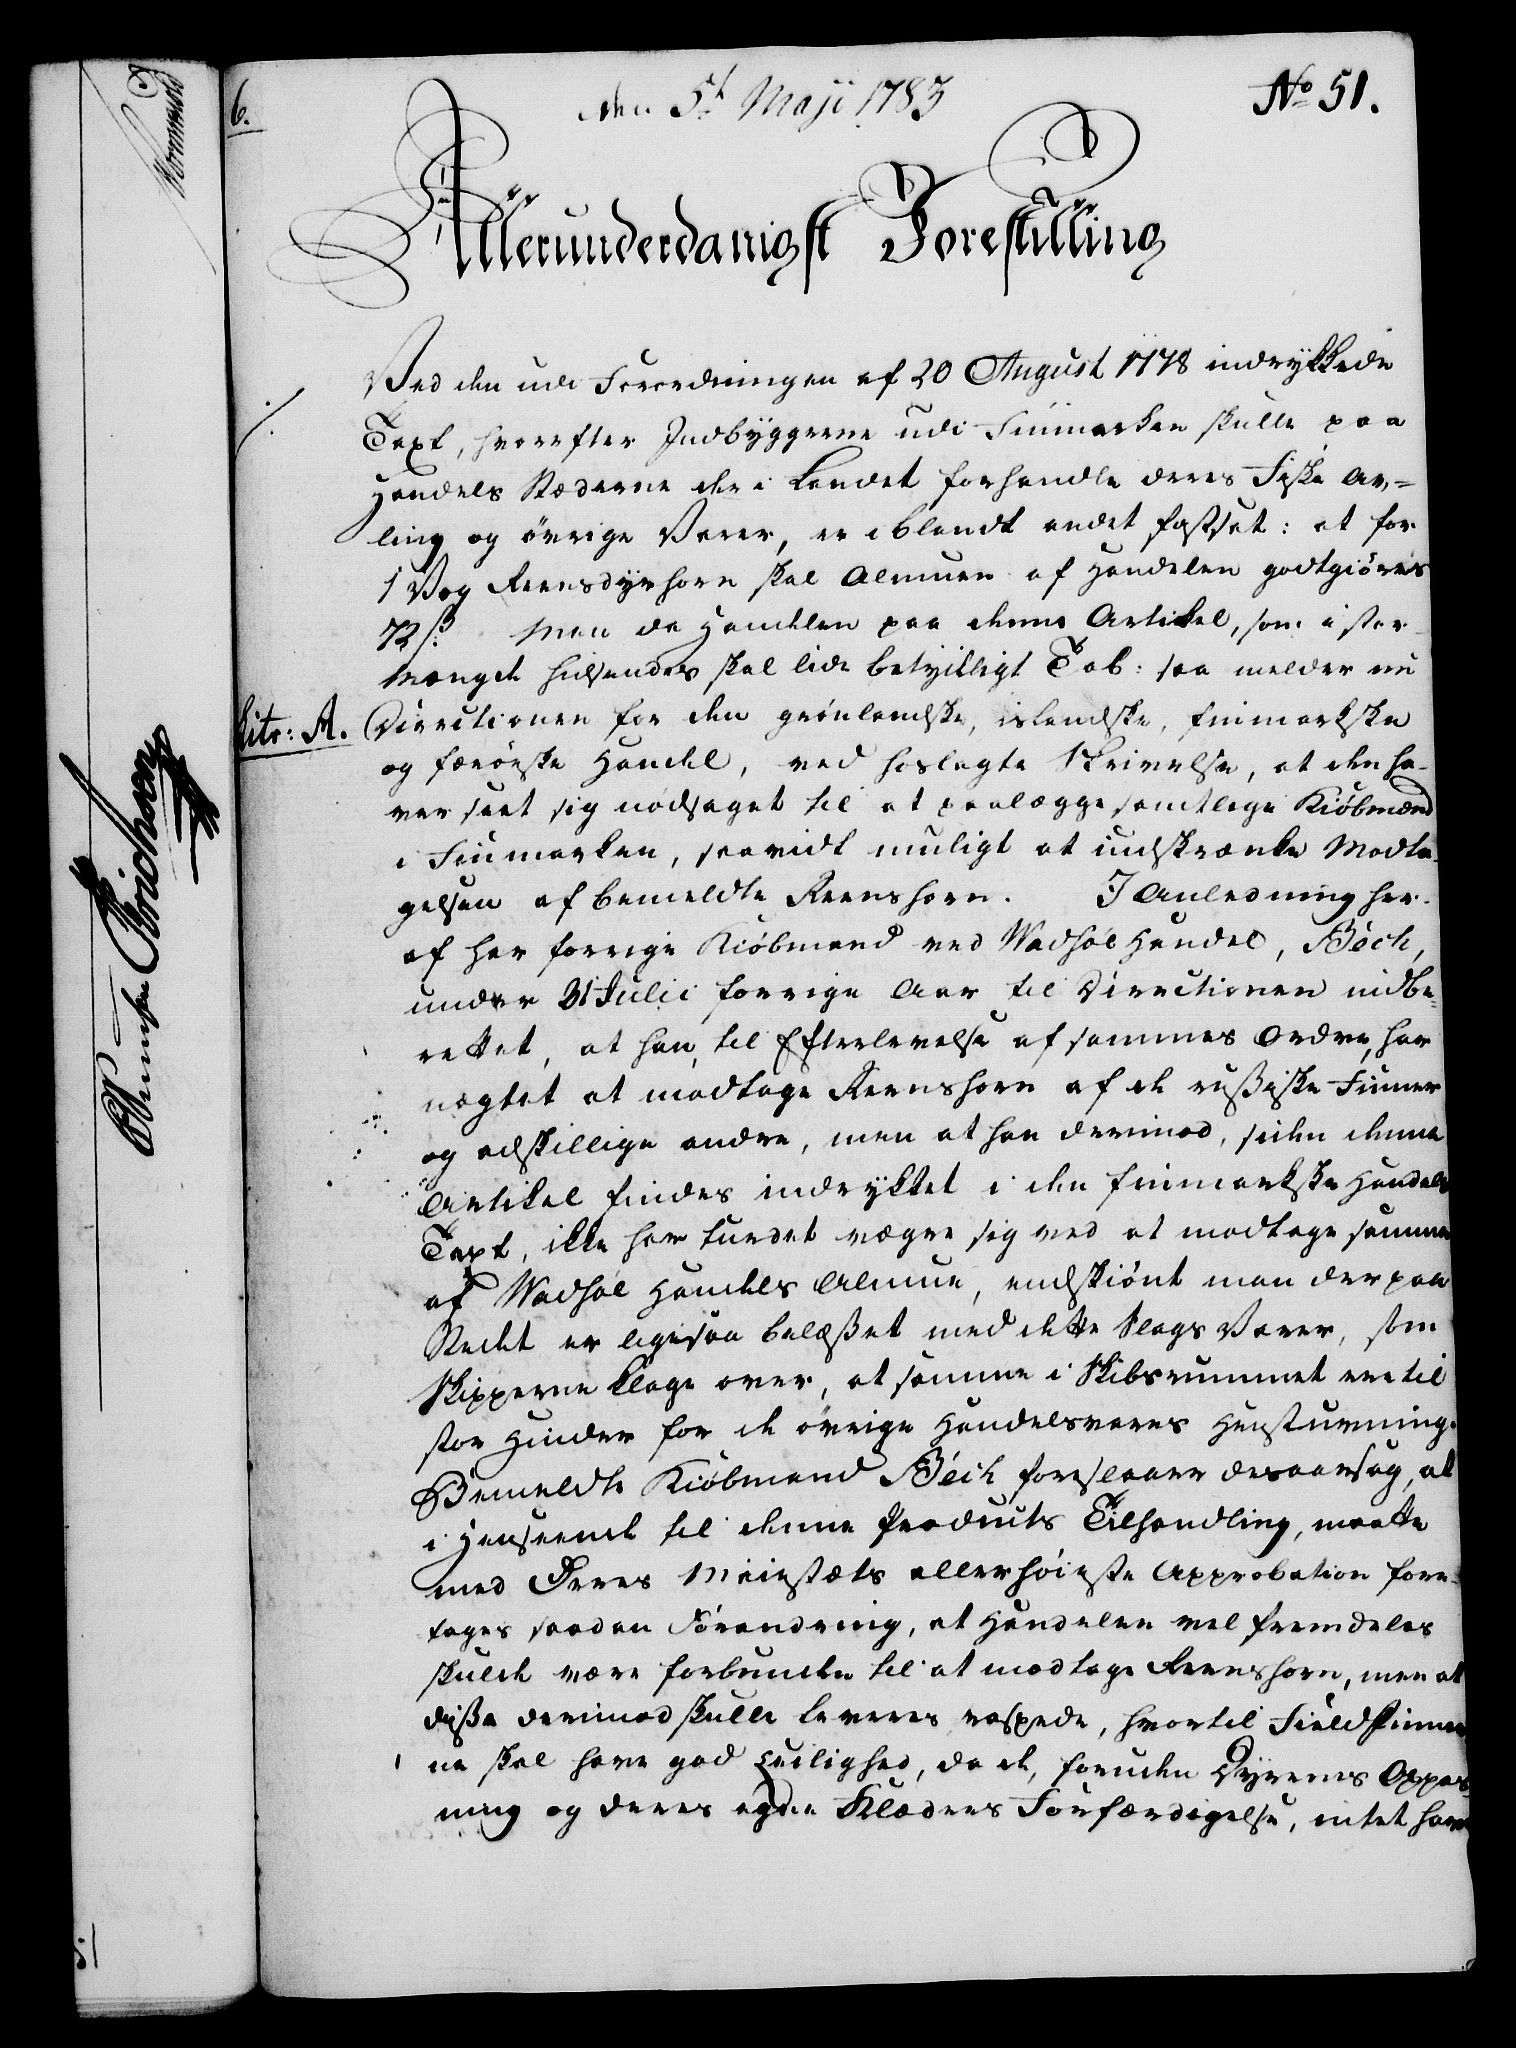 6.
den 5t Maji 1783
No 51.
Allerunderdanigst Forestilling
Ved den udi Forordningen af 20 August 1778 indrykkede
Taxt, hvorefter Indbyggerne udi Finmarken skulle paa
Handels Stæderne der i Landet forhandle deres Fiske Av-
ling og övrige Varer, er iblandt andet fastsat: at for
1 Vog Reensdyrhorn skal Almuen af Handelen godtgiöres
72 s. Men da Handelen paa denne Artikel, som i stor
Mængde hidsendes skal lide betydeligt Tab: saa melder nu
Litr: A. Directionen for den grönlandske, islandske, finmarkske
og færöiske Handel, ved hoslagte Skrivelse, at den ha-
ver seet sig nödsaget til at paalægge samtlige Kiöbmænd
i Finmarken, saavidt muligt at indskrænke Modta-
gelsen af bemeldte Reenshorn. I Anledning her-
af har forrige Kiöbmand ved Wadsöe Handel, Böch,
under 31 Julii forrige Aar til Directionen indbe-
rettet, at han, til Efterlevelse af sammes Ordre, har
nægtet at modtage Reenshorn af de rußiske Finner
og adskillige andre, men at han derimod, siden denne
Artikel findes indrykket i den finmarkske Handels
Taxt, ikke har turdet vægre sig ved at modtage samme
af Wadsöe Handels Almue, endskiönt man der paa
Stedet er ligesaa belæßet med dette Slags Varer, som
Skipperne klage over, at samme i Skibsrummet ere til
stor Hinder for de övrige Handelsvares Henstuvning.
Bemeldte Kiöbmand Böch foreslaaer desaarsag, at
i Henseende til denne Products Tilhandling, maatte
med Deres Maiestæts allerhöieste Approbation fore-
tages saadan Forandring, at Handelen vel fremdeles
skulde være forbunden til at modtage Reenshorn, men at
diße derimod skulle leveres raspede, hvortil Fieldfinner
ne skal have god Leilighed, da de, foruden Dyrenes Oppas
ning og deres egne Klæders Forfærdigelse, intet have